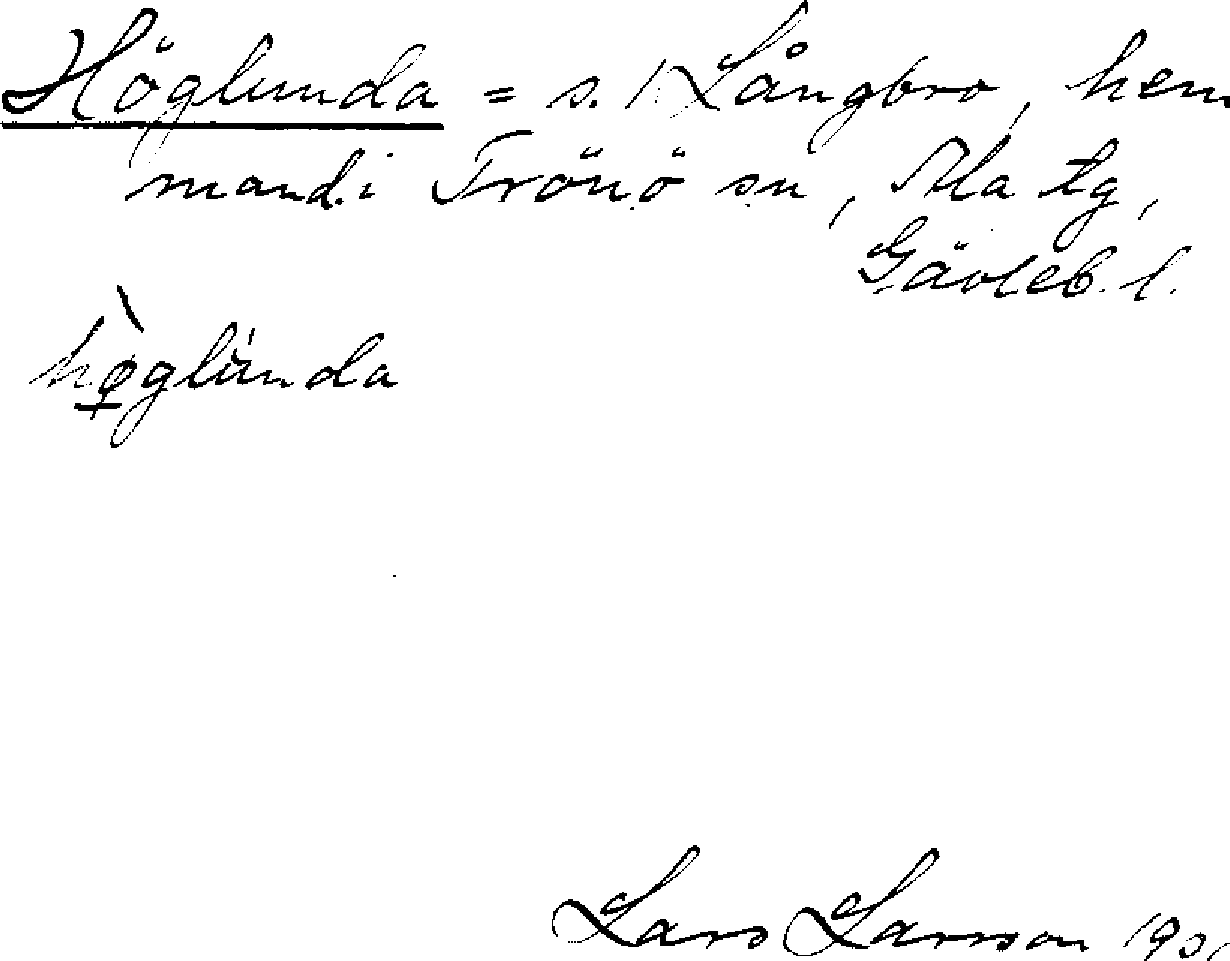 Höglunda = s. 1. Långbro, hem
mand. i Trönö sn, Ala tg,
Gävleb. l.
hø̀glúnda
Lars Larsson 1901